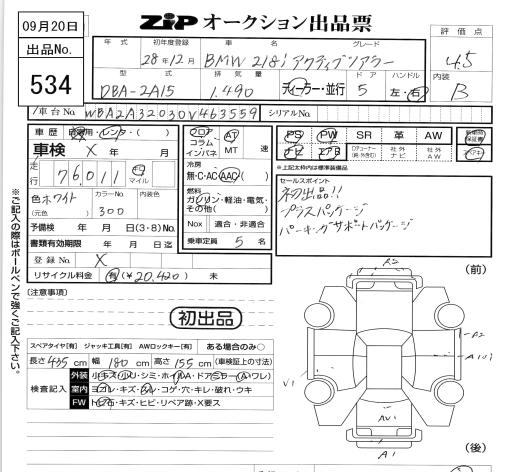 09月20日
出品No.
534
ZIP オークション出品票
評価点
4.5
内装
B
年式 初年度登録 車名 グレード
28年12月 BMW 218i アクティブツアラー
型式 排気量 ドア ハンドル
DBA-2A15 1.490 ディーラー・並行 5 左・右
車台No. WBA2A32030V463559 シリアルNo.
車歴 自家用・レンタ・( )
車検 X 年 月
走行 76,011 キロ マイル
色 ホワイト カラーNo. 300 内装色
(元色)
予備検 年 月 日(3・8)
書類有効期限 年 月 日迄
登録No X
リサイクル料金 有(¥20,420) 未
フロア コラム インパネ AT MT 速
冷房
無・C・AC・AAC( )
燃料
ガソリン・軽油・電気・その他( )
Nox 適合・非適合
乗車定員 5 名
PS PW SR 革 AW
ナビ エアB 社外ナビ 社外AW
新車時保証書
※上記太枠内は標準装備品
セールスポイント
初出品!!
プラスパッケージ
パーキングサポートパッケージ
※ご記入の際はボールペンで強くご記入下さい。
(注意事項)
初出品
スペアタイヤ[有] ジャッキ工具[有] AWロックキー[有] ある場合のみ○
長さ 435 cm 幅 180 cm 高さ 155 cm (車検証上の寸法)
検査記入
外装 小キズ・シミ・ホイールA・ドアミラー(A・ワレ)
室内 ヨゴレ・キズ・スレ・コゲ・穴・キレ・破れ・ウキ
FW トビ石・キズ・ヒビ・リペア跡・X要ス
(前)
(後)
A2
A1
U1
AU1
A1